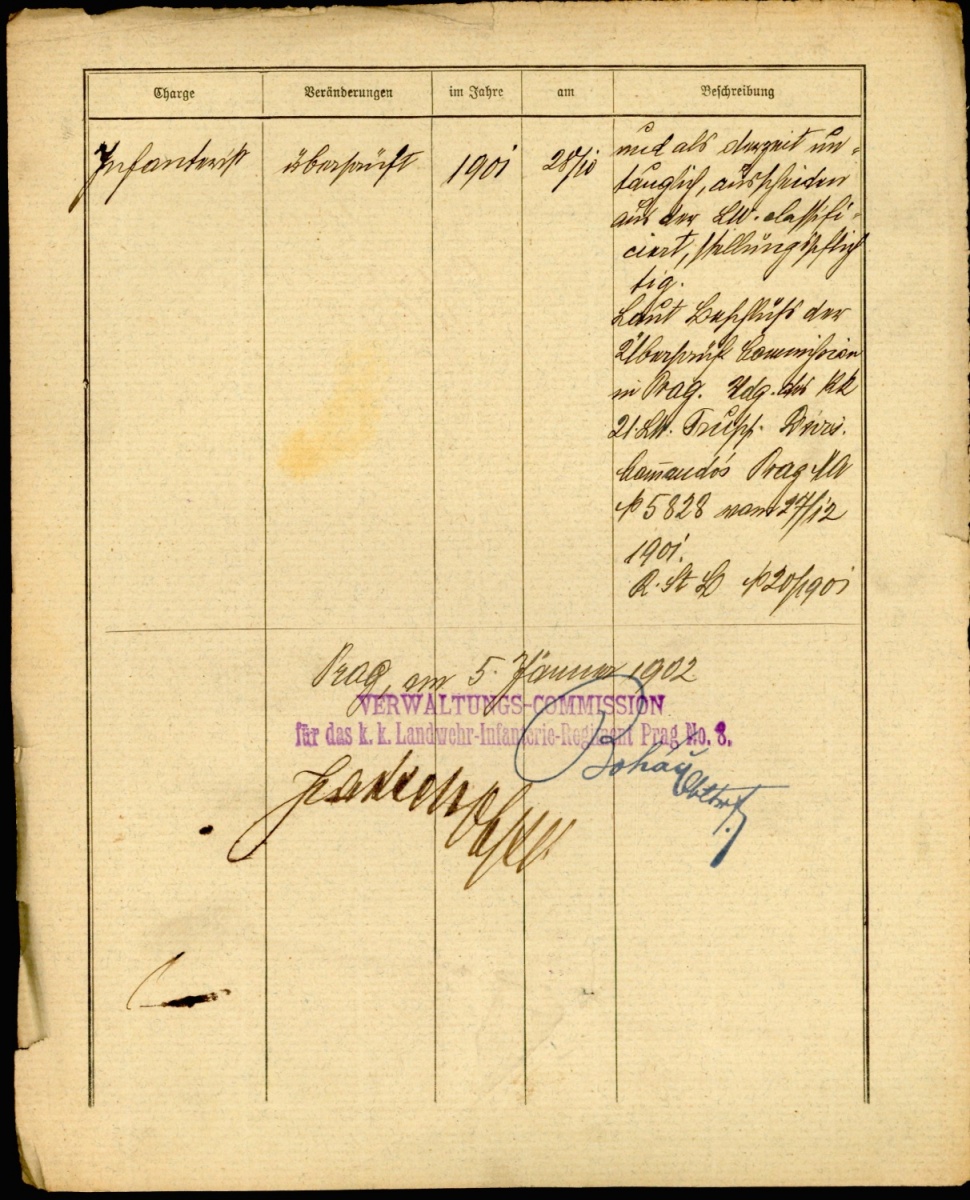 Charge
Veränderungen
im Jahre
am
Beschreibung
Infanterist
überprüft
1901
28/10
und als derzeit un-
tauglich, ausscheiden
aus der LW. classifi-
ciert, stellungspflich
tig.
Laut Beschluß der
Überprüf Commission
in Prag. Vdg. des kk
21. LW. Trupp. Divis.
Comandós Prag MA
N 5828 vom 27/12
1901.
R. St L N 20/1901
Prag, am 5. Jänner 1902
VERWALTUNGS-COMMISSION
für das k. k. Landwehr-Infanterie-Regiment Prag No. 8.
Obltnt